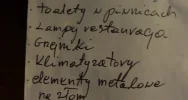 toalety w piwnicach
. Lampy restauracja
. Grzejniki
. Klimatyzatory
. elementy metalowe
na złom